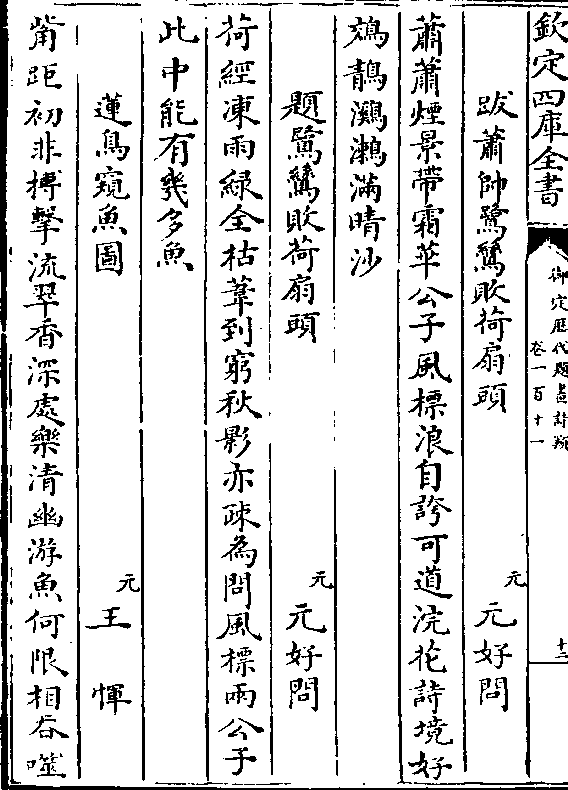 欽定四庫全書
御定歷代題畫詩類
卷一百十一
十三
跋蕭帥鷺鷥敗荷扇頭
元 元好問
蕭蕭煙景帶霜華公子風標浪自誇可道浣花詩境好
鵁鶄鸂鶒滿晴沙
題鷺鷥敗荷扇頭
元 元好問
荷經凍雨綠全枯葦到窮秋影亦疎為問風標兩公子
此中能有幾多魚
蓮鳥窺魚圖
元 王惲
觜距初非摶擊流翠香深處樂清幽游魚何限相吞噬